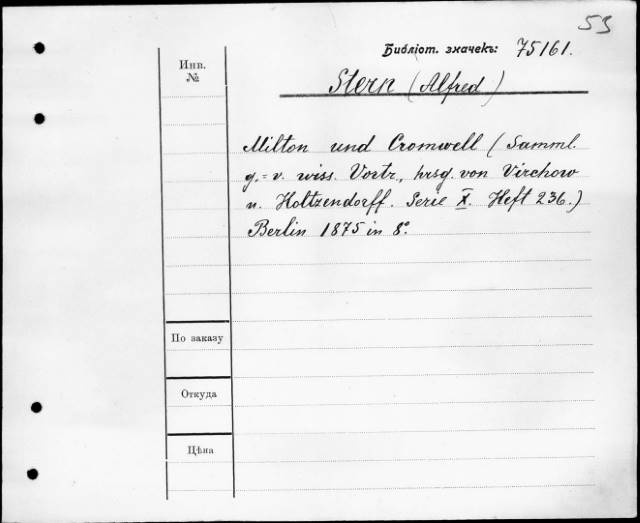 53
Библіот. значекъ: 75161.
Инв.
№
Stern (Alfred)
Milton und Cromwell (Samml.
g.=v. wiss. Vortr., hrsg. von Virchow
u. Holtzendorff. Serie X. Heft 236.)
Berlin 1875 in 8°.
По заказу
Откуда
Цѣна